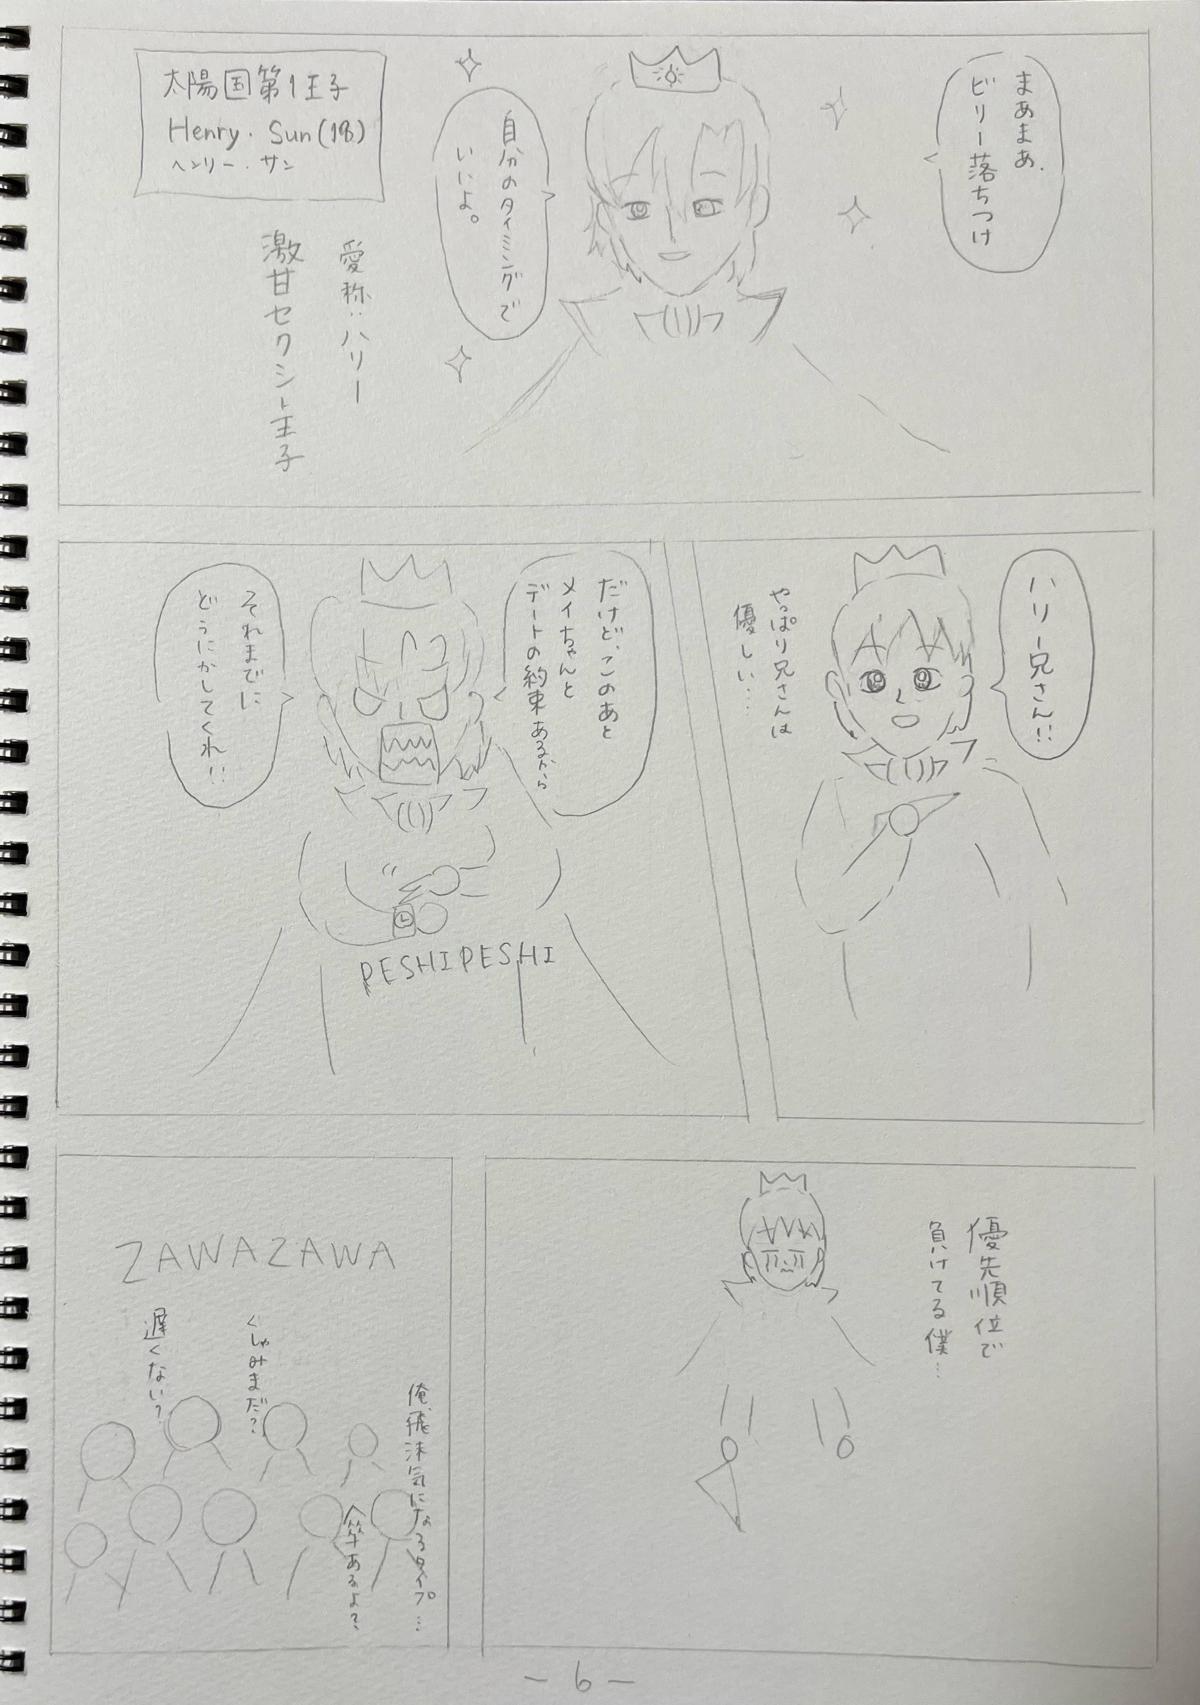 まあまあ、
ビリー落ちつけ
自分のタイミングで
いいよ。
太陽国第1王子
Henry・Sun(18)
ヘンリー・サン
愛称:ハリー
激甘セクシー王子
ハリー兄さん!!
やっぱり兄さんは
優しい…
だけど、このあと
メイちゃんと
デートの約束あるから
それまでに
どうにかしてくれ!!
PESHIPESHI
優先順位で
負けてる僕…
ZAWAZAWA
俺、飛沫気になるタイプ…
傘あるよ?
くしゃみまだ?
遅くない?
-6-